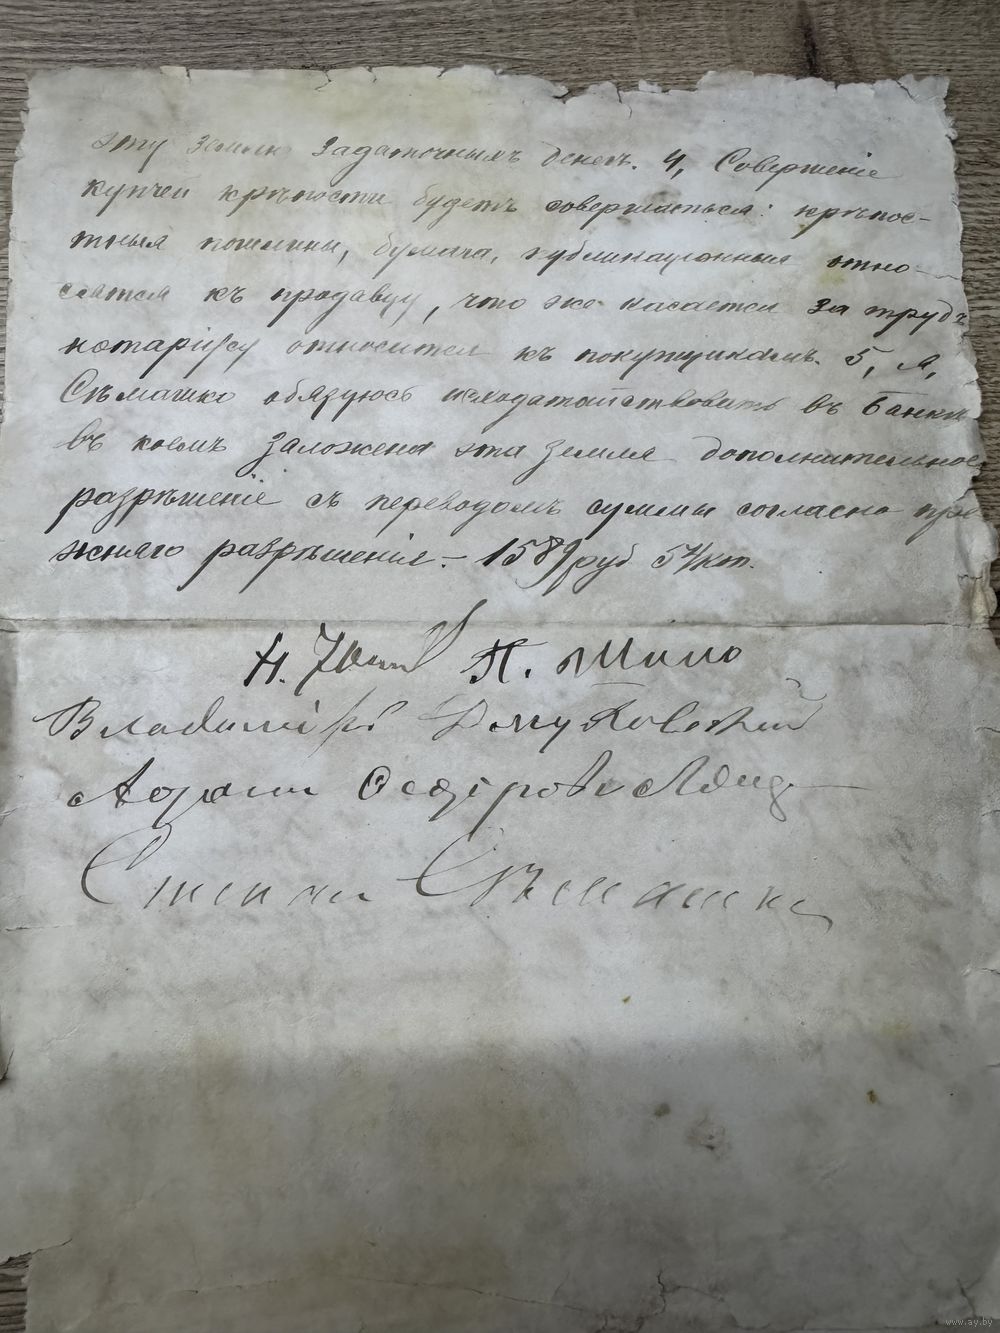 эту землю задаточныхъ денегъ. 4, Совершеніе
купчей крѣпости будетъ совершаться: крѣпос-
тныя пошлины, бумага, публикаціонныя отно-
сятся къ продавцу, что же касается за трудъ
нотаріусу относится къ покупщикамъ. 5, Я,
Сѣмашко обязуюсь исходатайствовать въ Банкѣ
въ коемъ заложена эта земля дополнительное
разрѣшеніе съ переводомъ суммы согласно пре
жняго разрѣшенія. – 1589 руб 54 коп.
Н. П.
Владиміръ
Степанъ Сѣмашко
www.ay.by